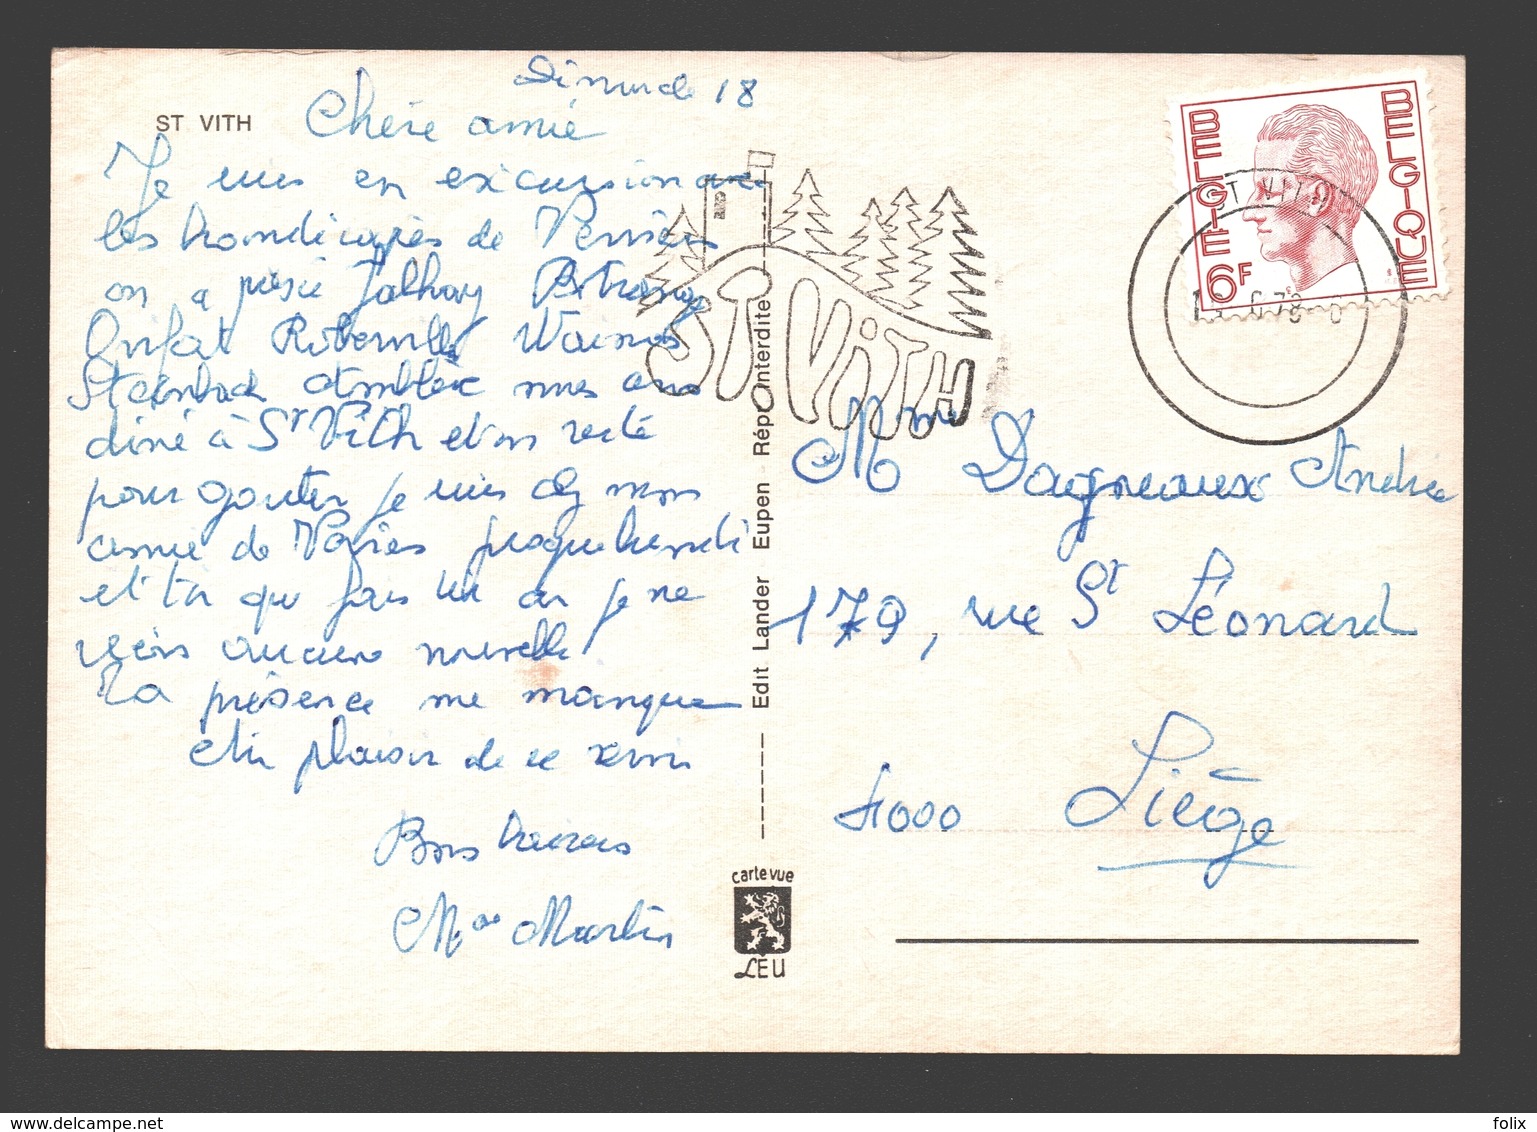 Dimanche 18
ST VITH
Chère amie
Je suis en excursion avec
les handicapés de Verviers
on a passé Jalhay Botrange
Ovifat Robertville Waimes
Steinbach Amblève nous avons
diné à St Vith et on reste
pour gouter je suis chez mon
amie de
et toi que fais tu on je ne
reçois aucune nouvelle
Ta présence me manque
au plaisir de te revoir
Bons baisers
Mme Martin
ST. VITH
BELGIE BELGIQUE
6F
ST VITH
Mme Dagneaux Andrée
179, rue St Léonard
4000 Liège
Edit Lander Eupen - Répr. interdite
carte vue
LEU
folix
www.delcampe.net